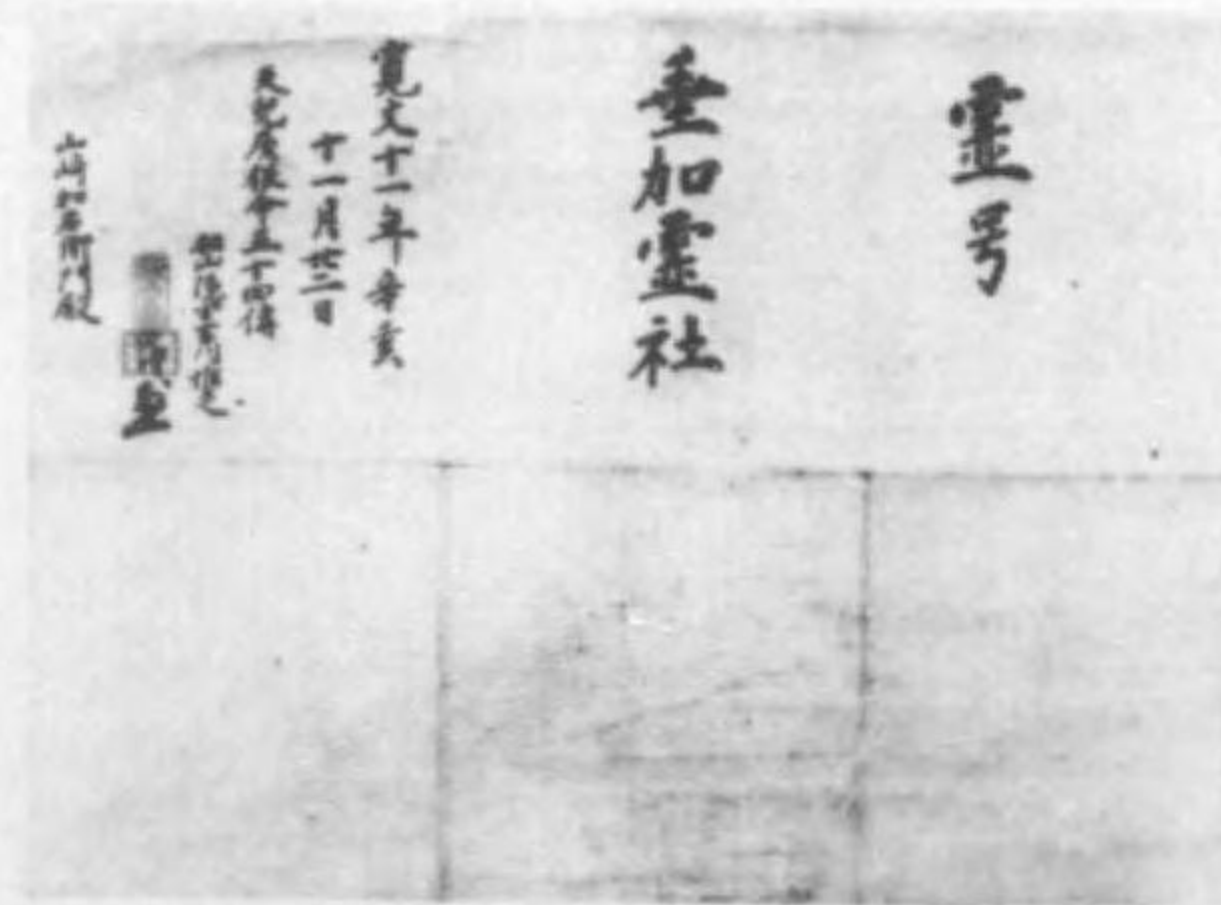 霊号
垂加霊社
寛文十一年辛亥
十一月廿二日
天児屋根命五十四傳
惟足
山崎加右衛門殿